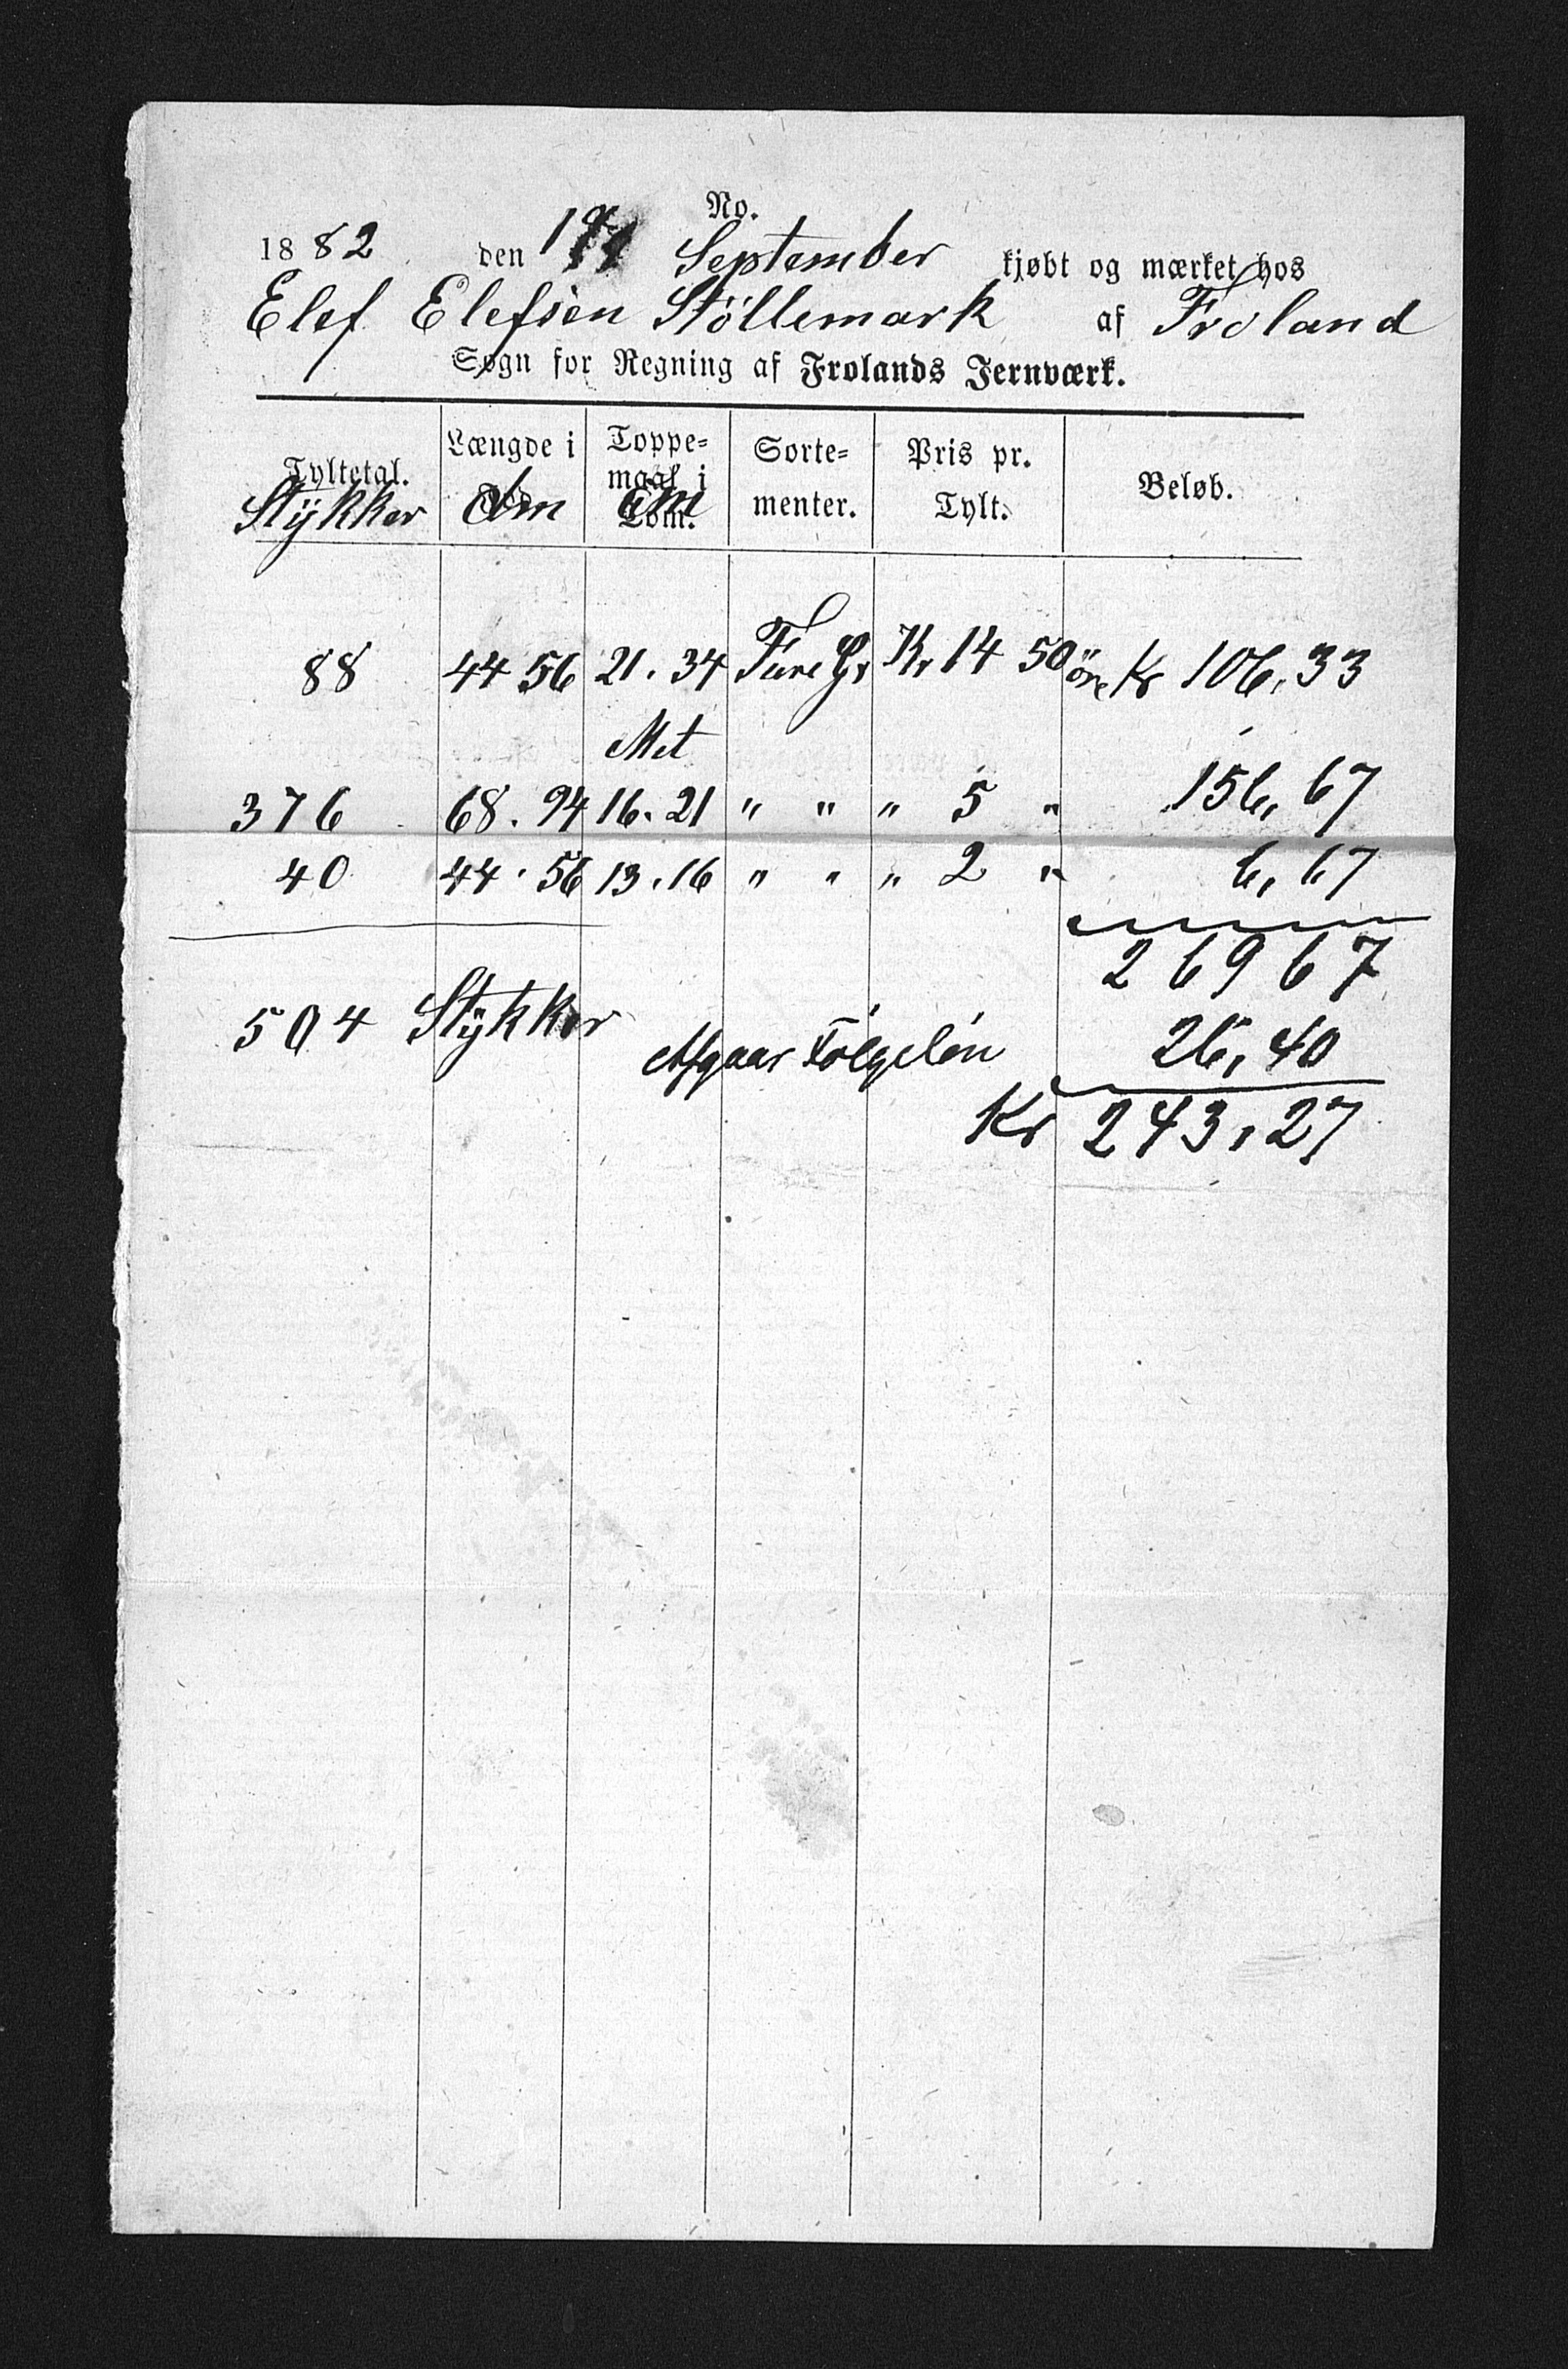 No.
1882 den September kjøbt og mærket hos
Elef Elefsen Stöllemark af Froland
Sogn for Regning af Frolands Jernværk.
Tyltetal. Længde i Toppe= Sorte= Pris pr. Beløb.
Stÿkker dm maal i Cm Tom. menter. Tylt.
88 44 56 21. 34 Furu Kr 14 50 öre Kr 106,33
Met
376 68. 94 16. 21 " " " 5 " 156,67
40 44. 56 13. 16 " " " 2 " 6,67
26967
504 Stÿkker
Afgaar Fölgelön 26,40
Kr 243,27